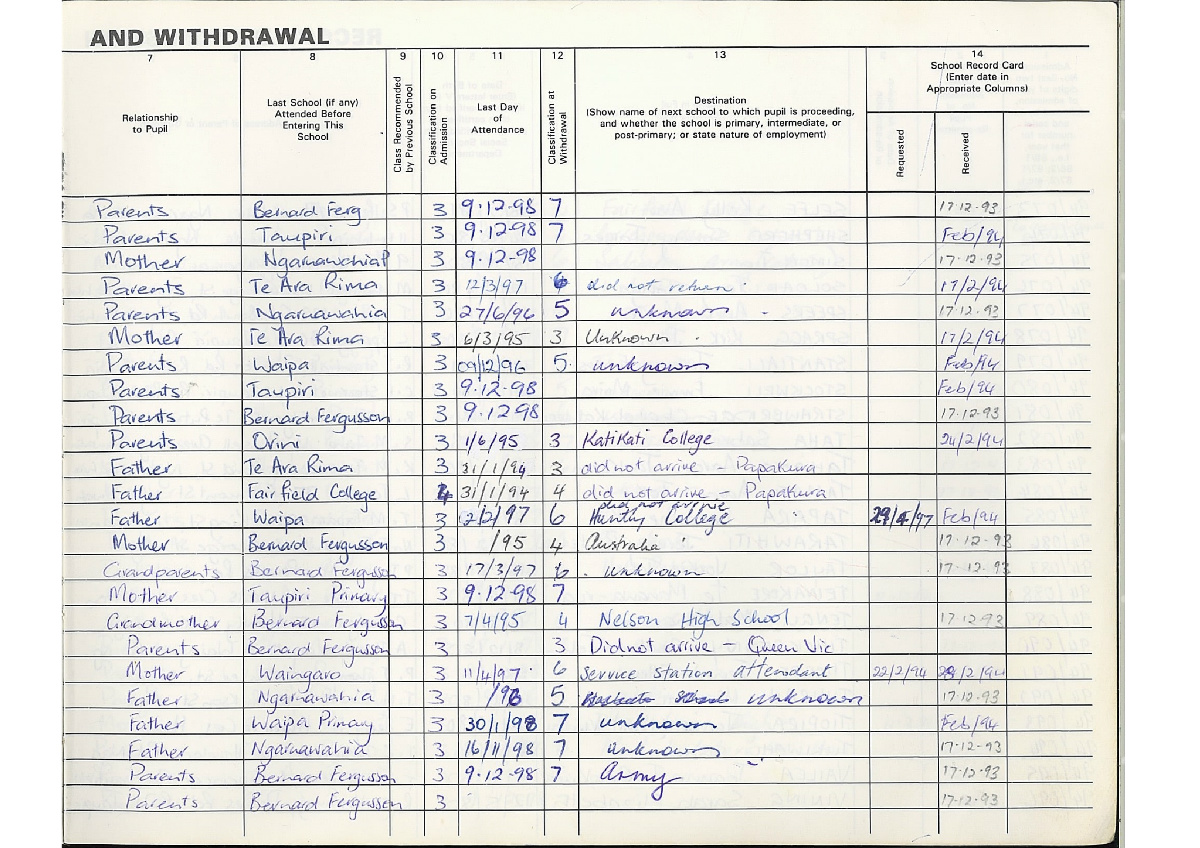 AND WITHDRAWAL
7 8 9 10 11 12 13 14
Relationship to Pupil
Last School (if any) Attended Before Entering This School
Class Recommended by Previous School
Classification on Admission
Last Day of Attendance
Classification at Withdrawal
Destination
(Show name of next school to which pupil is proceeding, and whether the school is primary, intermediate, or post-primary; or state nature of employment)
School Record Card (Enter date in Appropriate Columns)
Requested
Received
Parents Bernard Ferg 3 9·12·98 7 17·12·93
Parents Taupiri 3 9·12·98 7 Feb/94
Mother 3 9·12·98 17·12·93
Parents Te Ara Rima 3 12/3/97 6 did not return 17/2/94
Parents Ngaruawahia 3 27/6/96 5 unknown 17·12·93
Mother Te Ara Rima 3 6/3/95 3 Unknown 17/2/94
Parents Waipa 3 09/12/96 5 unknown Feb/94
Parents Taupiri 3 9·12·98 Feb/94
Parents Bernard Fergusson 3 9·12·98 17·12·93
Parents Orini 3 1/6/95 3 KatiKati College 24/2/94
Father Te Ara Rima 3 31/1/94 3 did not arrive - Papakura
Father Fairfield College 4 31/1/94 4 did not arrive - Papakura
did not arrive
Father Waipa 3 12/2/97 6 Huntly College 29/4/97 Feb/94
Mother Bernard Fergusson 3 /95 4 Australia 17·12·93
Grandparents Bernard Fergusson 3 17/3/97 6 unknown 17·12·93
Mother Taupiri Primary 3 9·12·98 7
Grandmother Bernard Fergusson 3 7/4/95 4 Nelson High School 17·12·93
Parents Bernard Fergusson 3 3 Did not arrive - Queen Vic
Mother Waingaro 3 11/4/97 6 service station attendant 22/2/94 29/2/94
Father Ngaruawahia 3 /96 5 unknown 17·12·93
Father Waipa Primary 3 30/1/98 7 unknown Feb/94
Father Ngaruawahia 3 16/11/98 7 unknown 17·12·93
Parents Bernard Fergusson 3 9·12·98 7 Army 17·12·93
Parents Bernard Fergusson 3 17·12·93